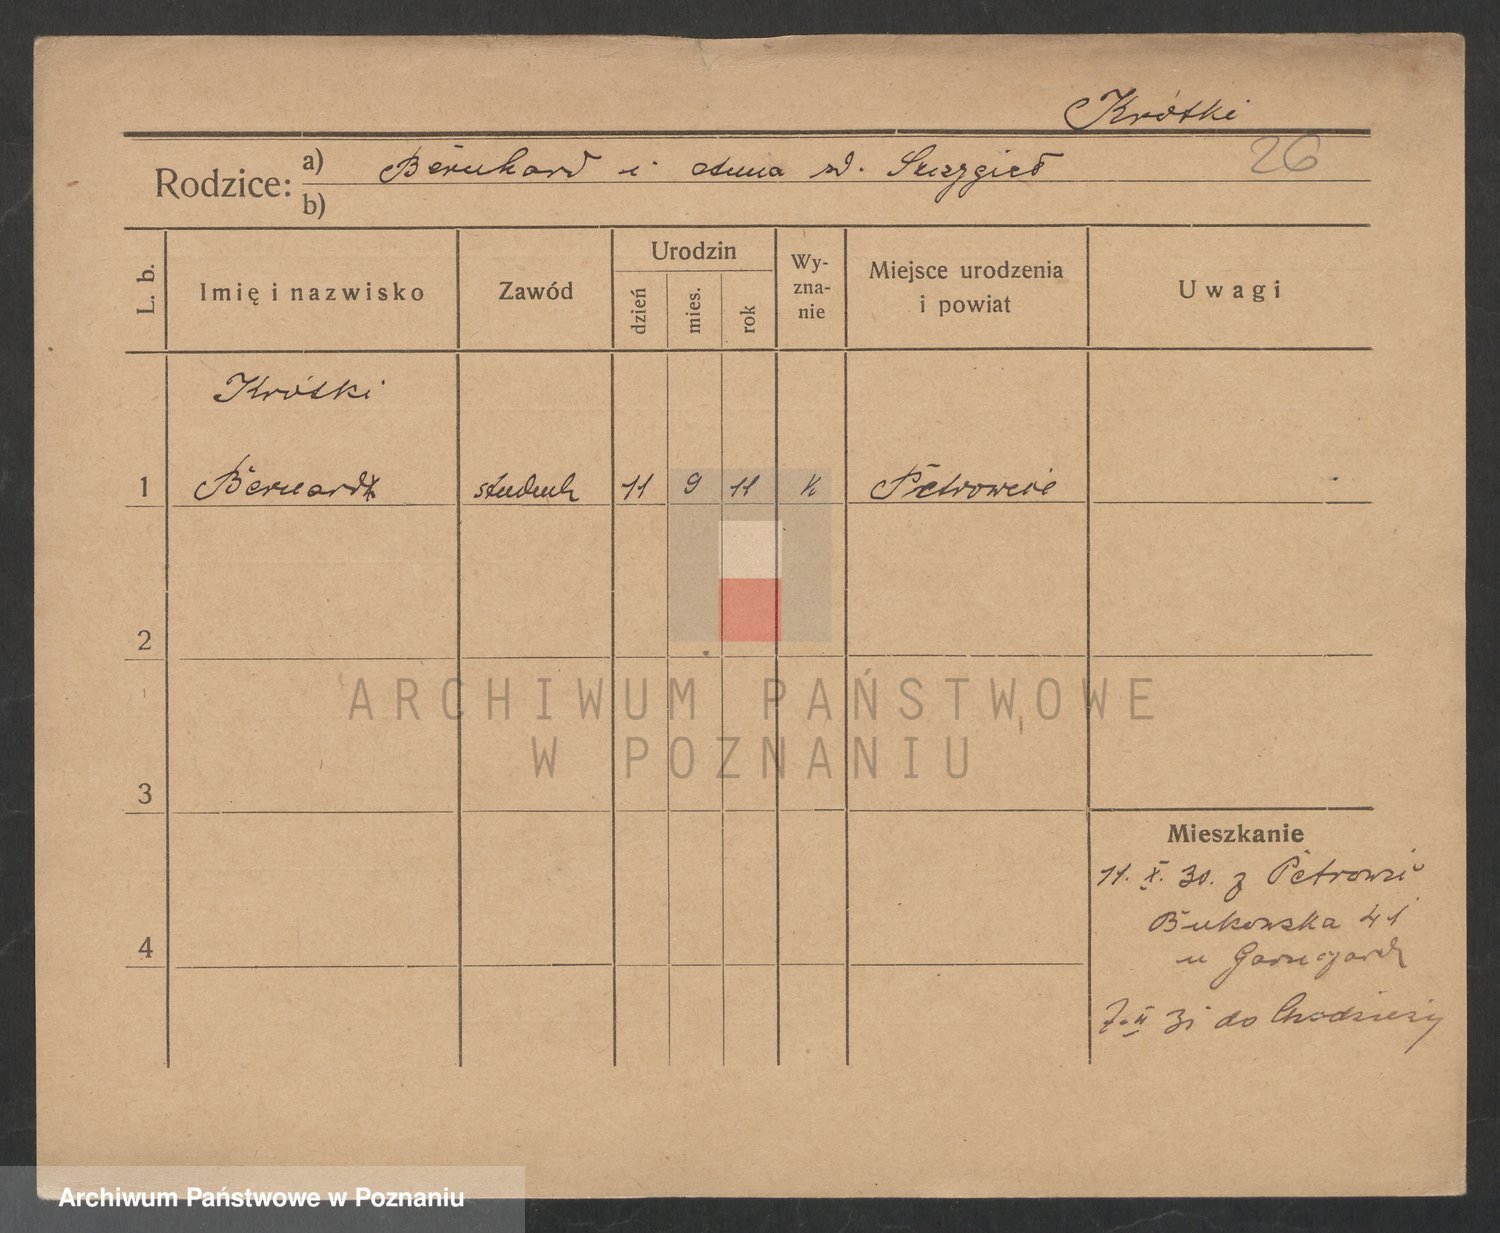 Krótki
26
Rodzice: a) Bernhard i Anna zd. Szczygieł
b)
L. b. Imię i nazwisko Zawód Urodzin dzień mies. rok Wy-zna-nie Miejsce urodzenia i powiat Uwagi
Krótki
1 Bernard student 11 9 11 k
2
ARCHIWUM PAŃSTWOWE
W POZNANIU
3
Mieszkanie
11. X. 30. z
Bukowska 41
4 u
7. 31 do Chodzieży
Archiwum Państwowe w Poznaniu